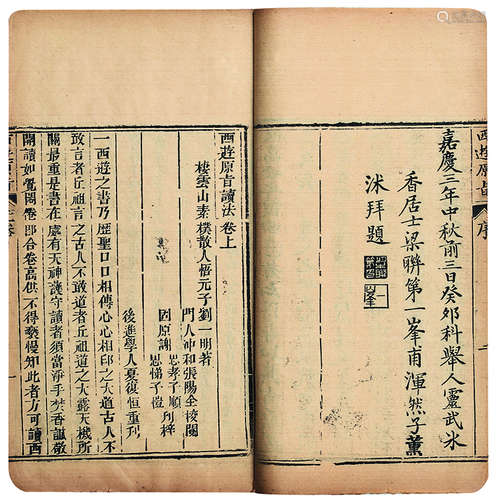 西遊原旨 序
嘉慶三年中秋前三日癸卯科舉人靈武冰
香居士梁聯第一峯甫渾然子薰
沐拜題
一峯
西遊原旨讀法卷上
棲雲山素樸散人悟元子劉一明著
門人沖和張陽全校閱
思孝子順
因原謝 列梓
思悌子愷
後進學人夏復恒重刊
一西遊之書乃歷聖口口相傳心心相印之大道古人不
敢言者丘祖言之古人不敢道者丘祖道之大露天機所
關最重是書在處有天神護守讀者須當淨手焚香誠敬
開讀如覺悶卷即合卷高供不得褻慢知此者方可讀西